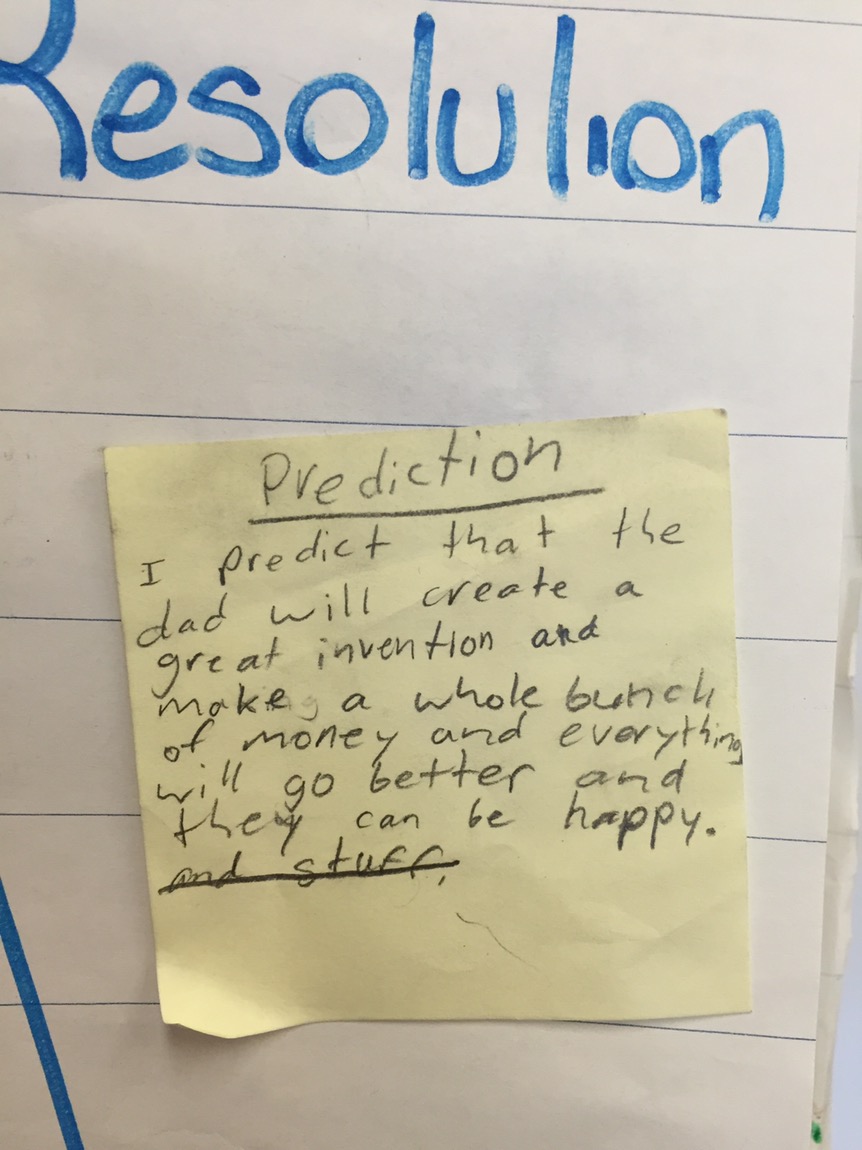 Resolution
Prediction
I predict that the
dad will create a
great invention and
make a whole bunch
of money and everything
will go better and
they can be happy.
and stuff.